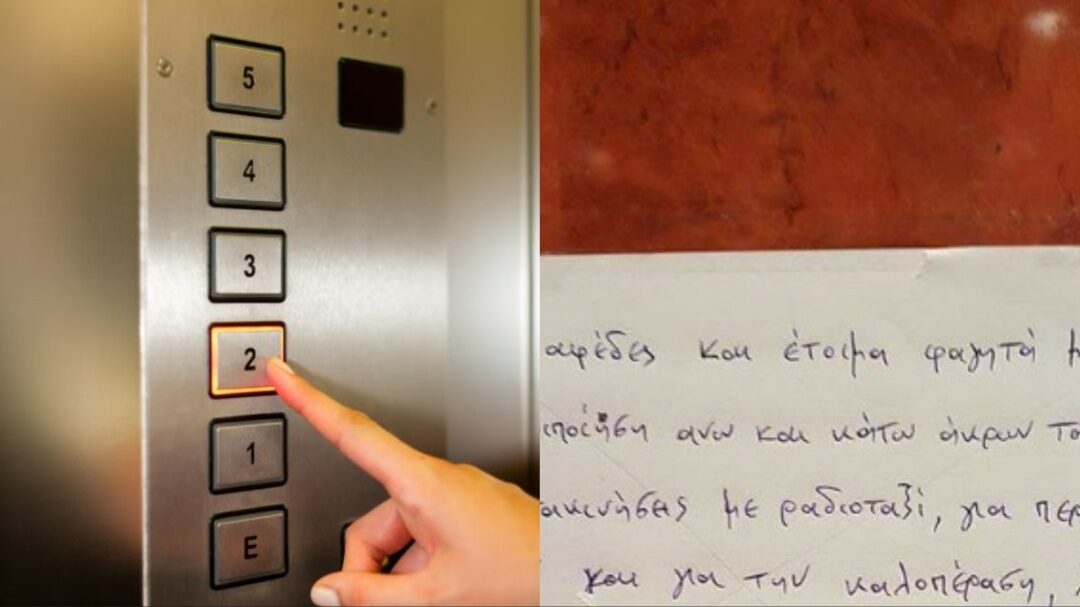 5
4
3
2
1
E
αφέδες και έτοιμα φαγητά
ανω και κάτω άκρων
ακινήσεις με ραδιοταξί, για περ
και για την καλοπέραση,